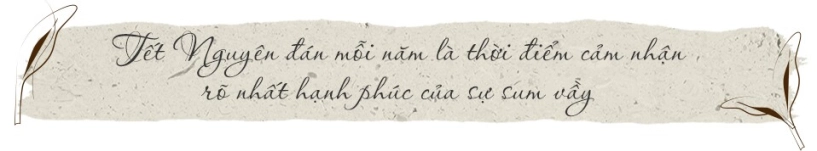 Tết Nguyên đán mỗi năm là thời điểm cảm nhận
rõ nhất hạnh phúc của sự sum vầy